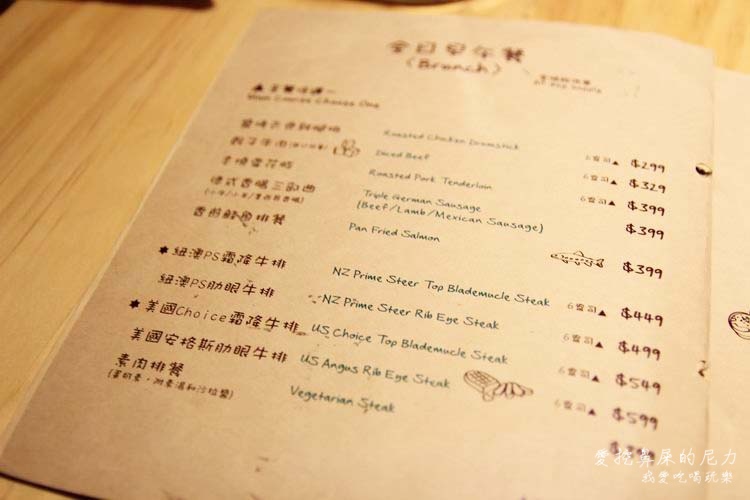 今日早午餐
(Brunch)
Main Courses Choose One
Roasted Chicken Drumstick $299
骰子牛肉 Diced Beef 6盎司▲ $329
Roasted Pork Tenderloin 6盎司▲ $399
德式香腸三部曲 Triple German Sausage $399
(Beef/Lamb/Mexican Sausage)
香煎鮭魚排餐 Pan Fried Salmon $399
★紐澳PS霜降牛排 NZ Prime Steer Top Blademucle Steak 6盎司▲ $449
紐澳PS肋眼牛排 NZ Prime Steer Rib Eye Steak 6盎司▲ $499
★美國Choice霜降牛排 US Choice Top Blademucle Steak 6盎司▲ $549
美國安格斯肋眼牛排 US Angus Rib Eye Steak 6盎司▲ $599
素肉排餐 Vegetarian Steak
愛挖鼻屎的尼力
我愛吃喝玩樂